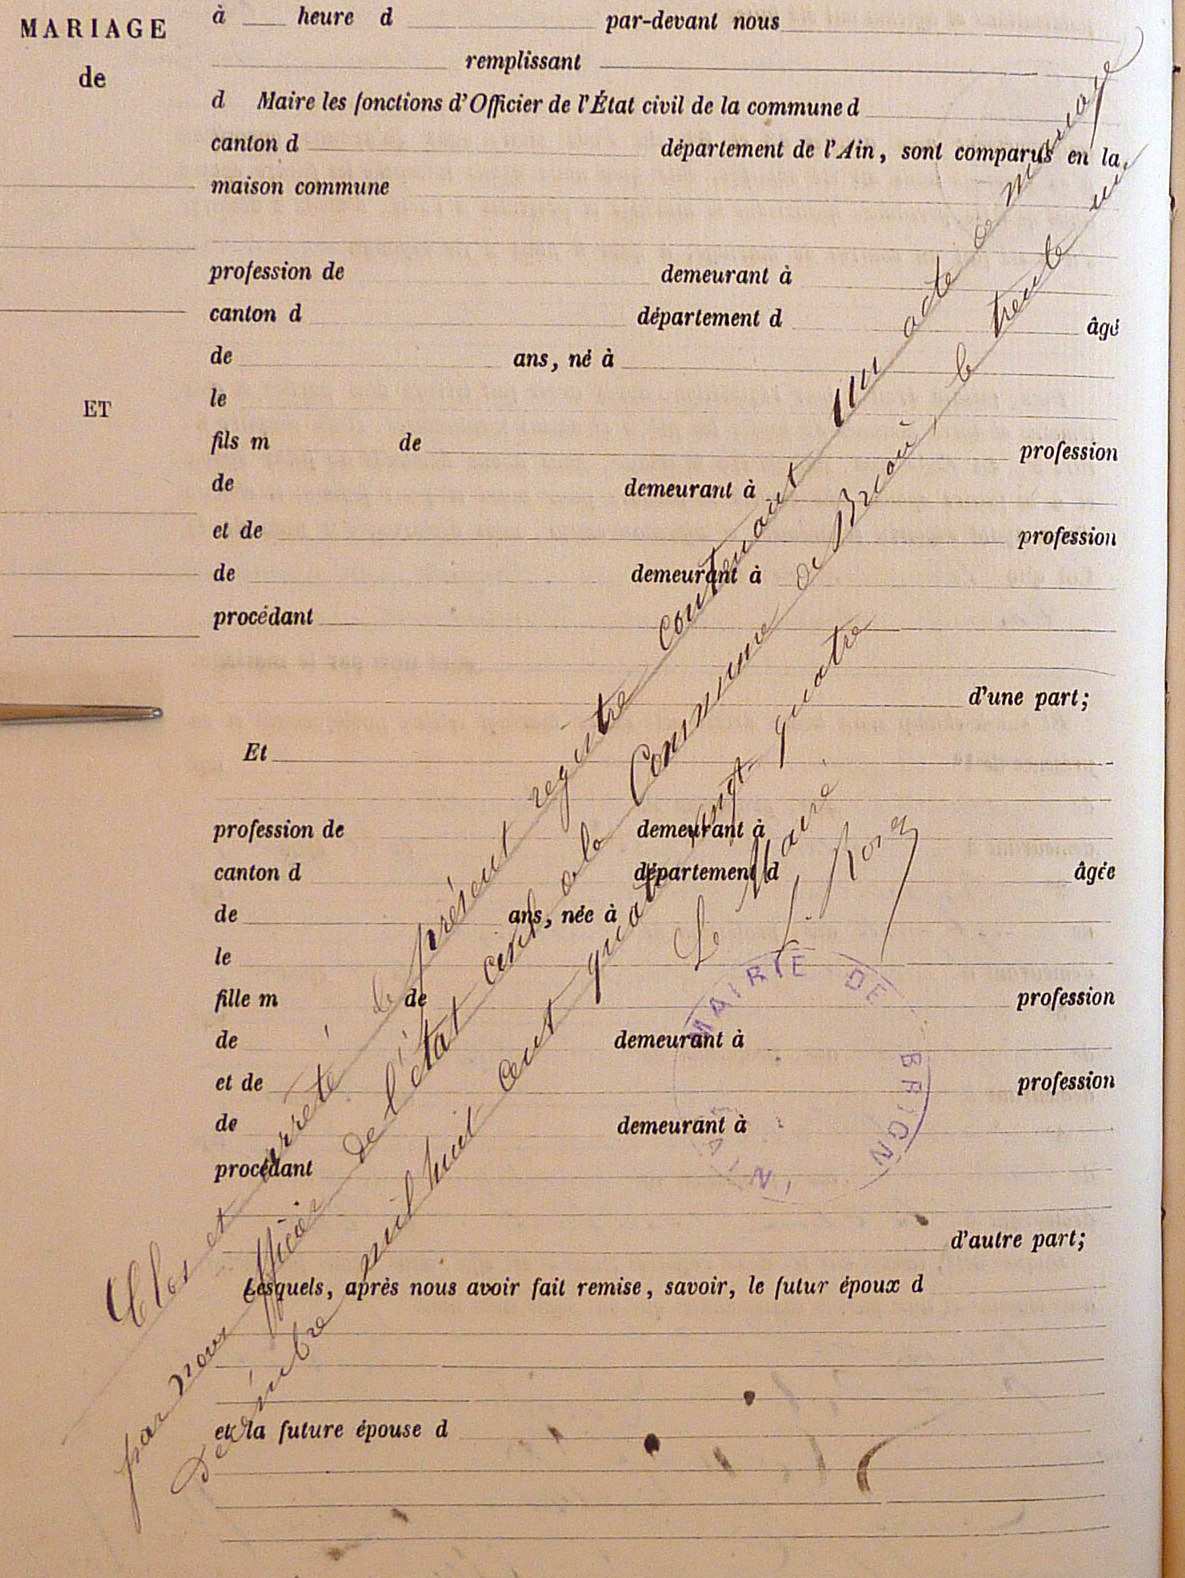 MARIAGE
de
ET
à heure d par-devant nous
remplissant
d Maire les fonctions d'Officier de l'État civil de la commune d
canton d département de l'Ain, sont comparus en la
maison commune
profession de demeurant à
canton d département d âgé
de ans, né à
le
fils m de profession
de demeurant à
et de profession
de demeurant à
procédant
d'une part;
Et
profession de demeurant à
canton d département d âgée
de ans, née à
le
fille m de profession
de demeurant à
et de profession
de demeurant à
procédant
d'autre part;
Lesquels, après nous avoir fait remise, savoir, le futur époux d
et la future épouse d
Clos et arrêté le présent registre contenant un acte de mariage
par nous officier de l'état civil de la Commune de , le trente un
Décembre mil huit cent quatre vingt-quatre
Le Maire
MAIRIE DE BRIGN
AIN